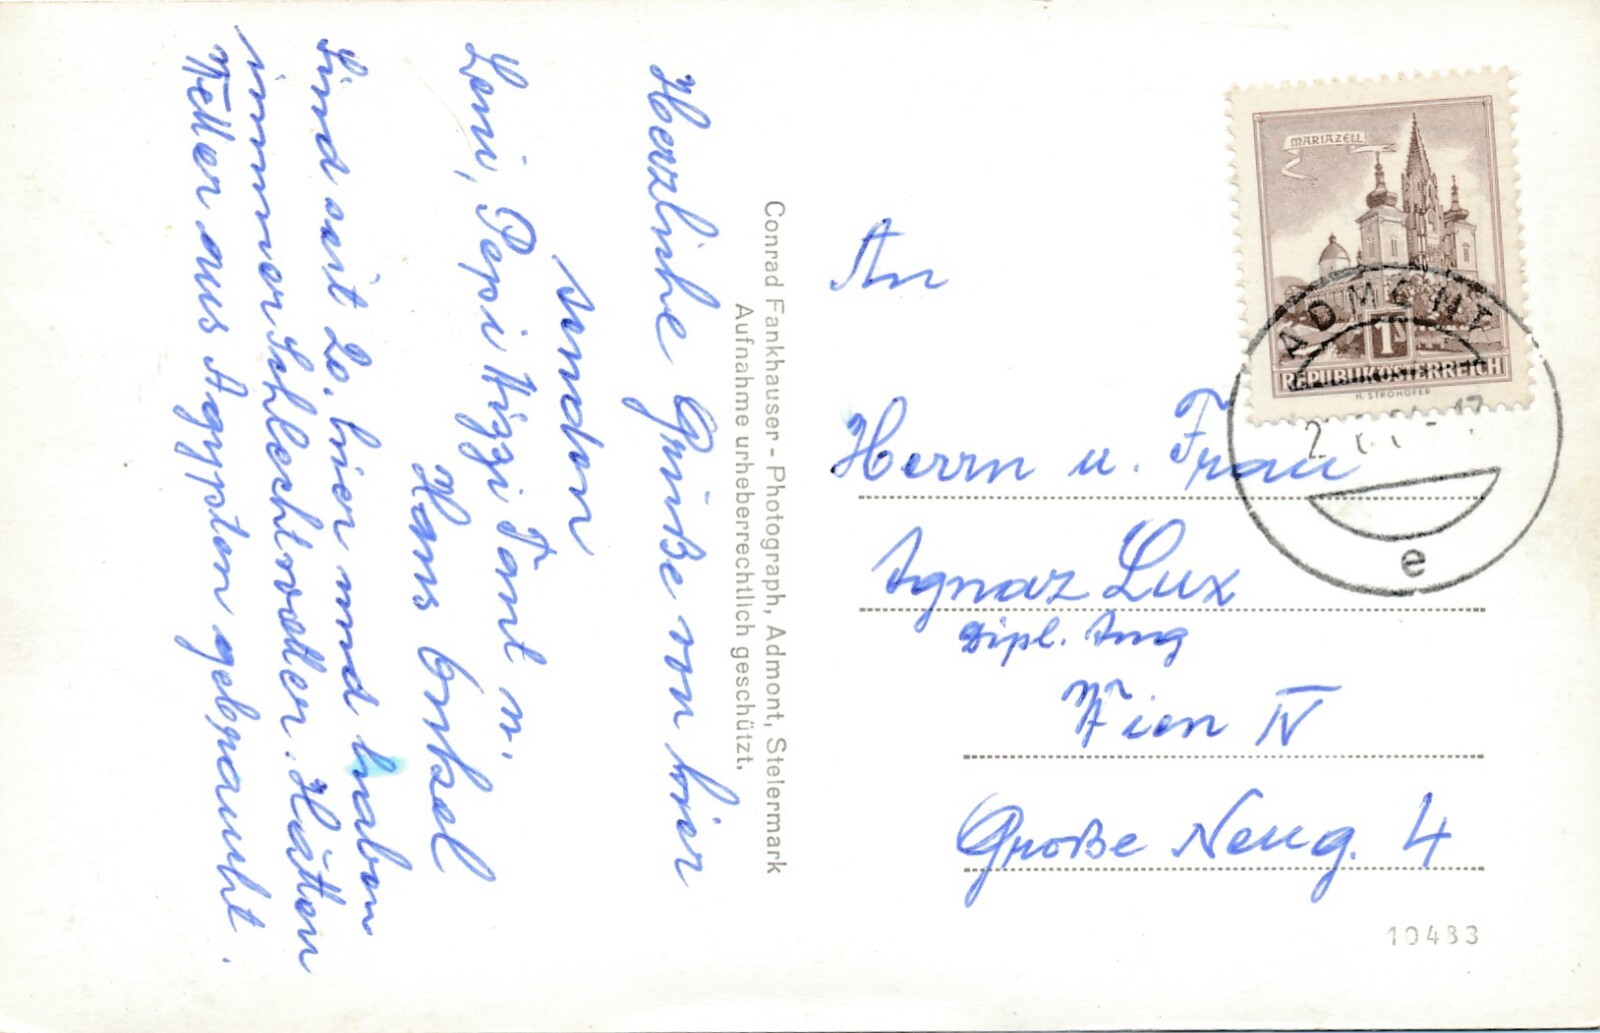 Herzliche Grüße von hier
senden
Leni, Pepi Wizzi Tant u.
Hans Onkel
Sind seit 20. hier und haben
immer Schlechtwetter. Hätten
Wetter aus Agypten gebraucht.
Conrad Fankhauser - Photograph, Admont, Steiermark
Aufnahme urheberrechtlich geschützt.
MARIAZELL
1S
REPUBLIK ÖSTERREICH
H. STROHOFER
ADMONT
e
An
Herrn u. Frau
Ignaz Lux
Dipl. Ing
Wien IV
Große Neug. 4
10483